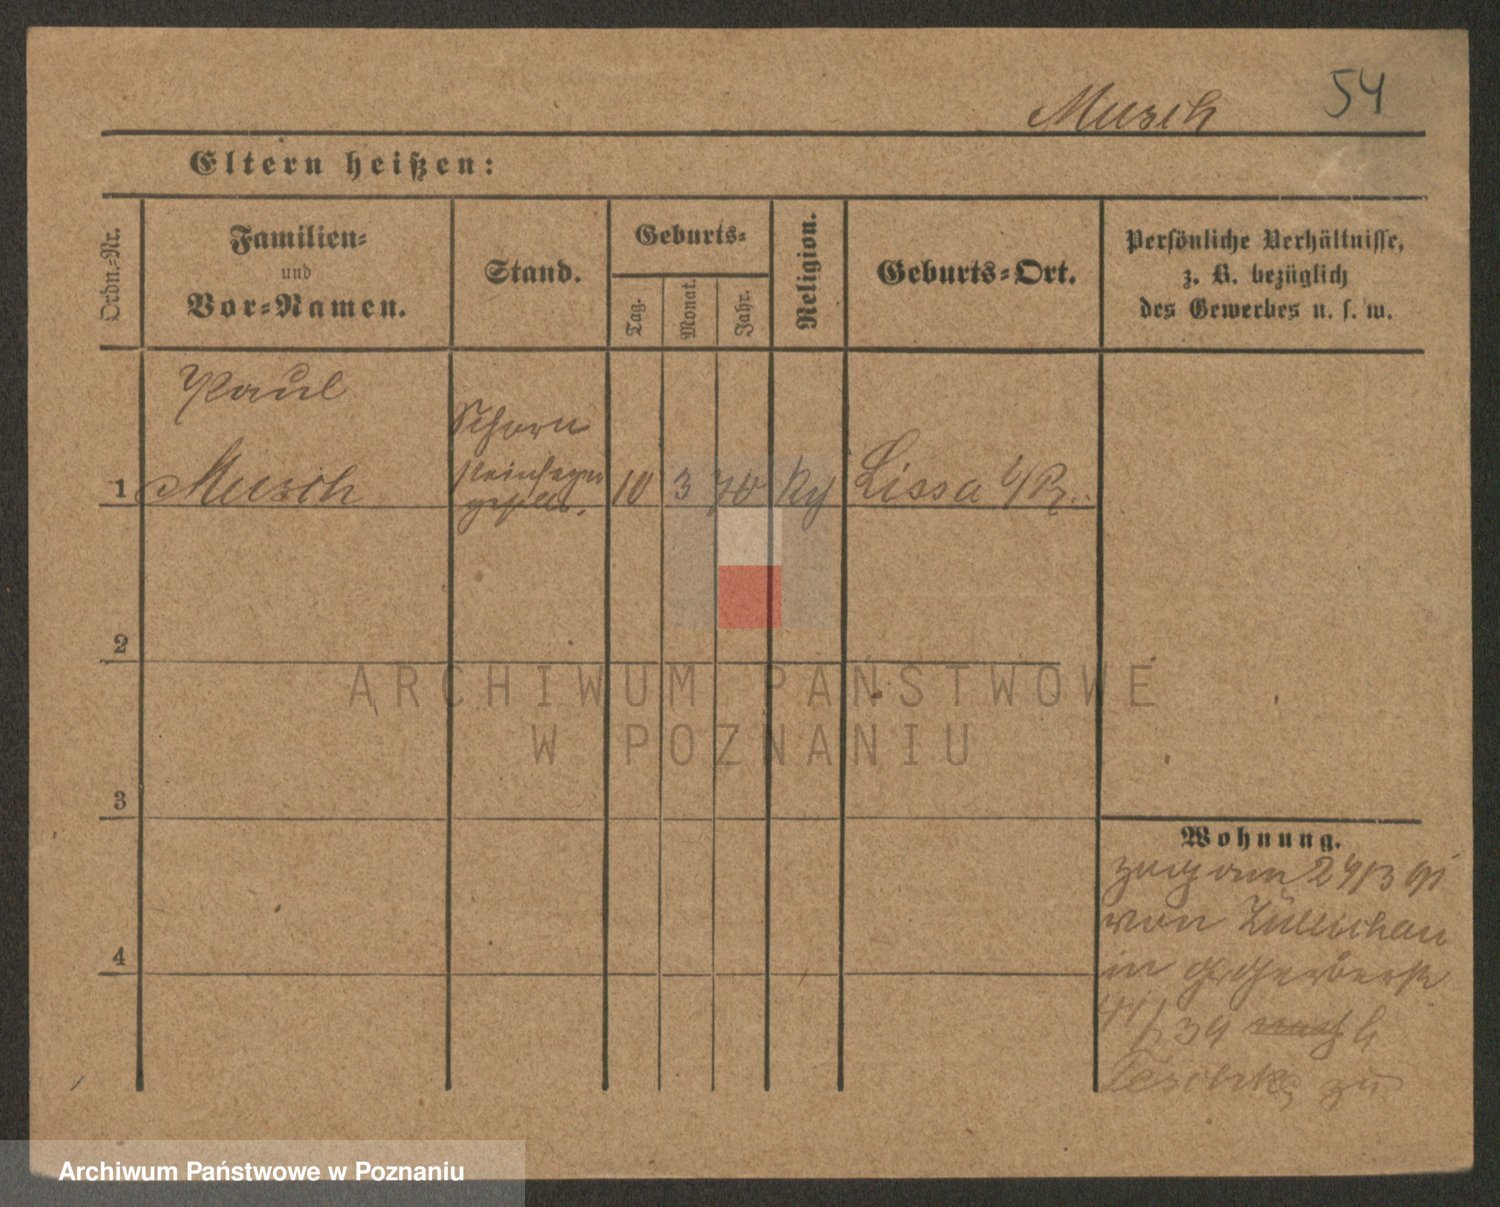 54
Musch
Eltern heißen:
Ordn.-Nr.
Familien-
und
Vor-Namen.
Stand.
Geburts-
Tag.
Monat.
Jahr.
Religion.
Geburts-Ort.
Persönliche Verhältnisse,
z. B. bezüglich
des Gewerbes u. s. w.
Paul
Schorn
steinfeger
geselle.
1 Musch 10 3 70 Lissa
2
3
4
Wohnung.
zug am 24/3 91
von Züllichau
in Gr Gerberstr
39
zu
ARCHIWUM PAŃSTWOWE
W POZNANIU
Archiwum Państwowe w Poznaniu